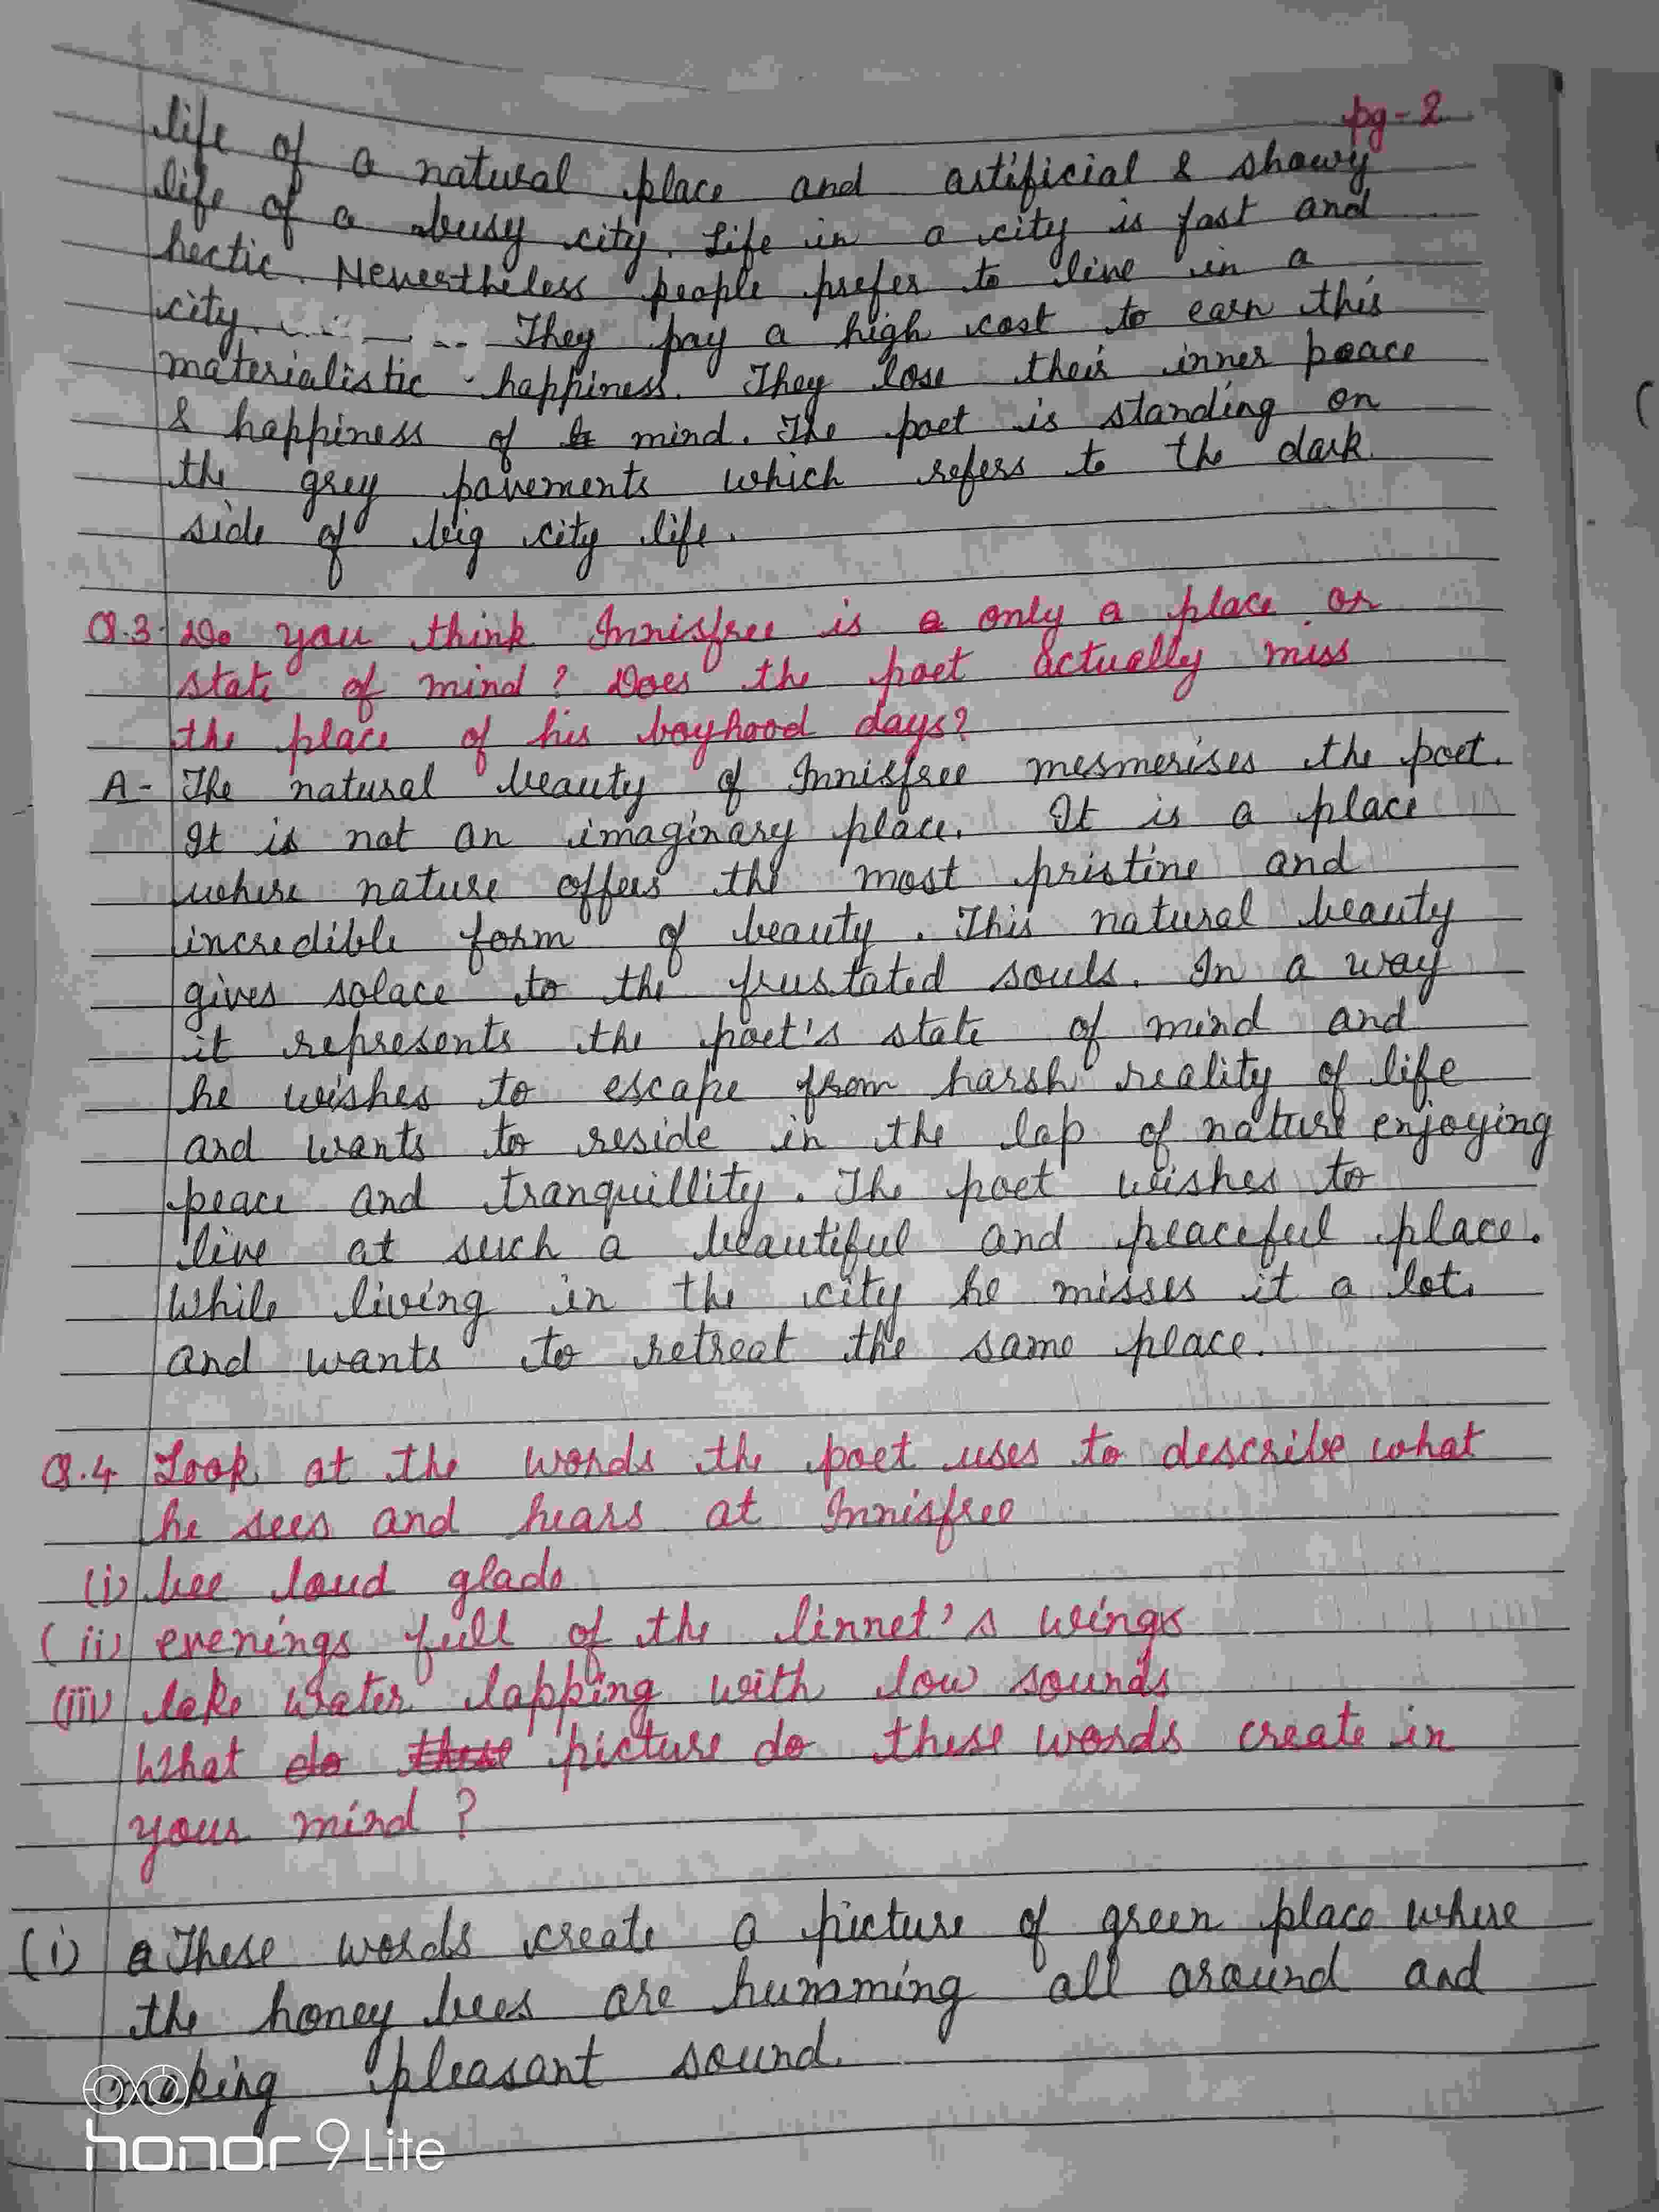 pg-2
life of a natural place and artificial & showy
life of a busy city. Life in a city is fast and
hectic. Nevertheless people prefer to live in a
city. They pay a high cost to earn this
materialistic happiness. They lose their inner peace
& happiness of mind. The poet is standing on
the grey pavements which refers to the dark
side of big city life.
Q.3 Do you think Innisfree is only a place or
state of mind? Does the poet actually miss
the place of his boyhood days?
A- The natural beauty of Innisfree mesmerises the poet.
It is not an imaginary place. It is a place
where nature offers the most pristine and
incredible form of beauty. This natural beauty
gives solace to the frustated souls. In a way
it represents the poet's state of mind and
he wishes to escape from harsh reality of life
and wants to reside in the lap of nature enjoying
peace and tranquillity. The poet wishes to
live at such a beautiful and peaceful place.
While living in the city he misses it a lot.
and wants to retreat the same place.
Q.4 Look at the words the poet uses to describe what
he sees and hears at Innisfree
(i) bee loud glade
(ii) evenings full of the linnet's wings
(iii) lake water lapping with low sounds
What do these picture do these words create in
your mind?
(i) These words create a picture of green place where
the honey bees are humming all around and
making pleasant sound.
honor 9 Lite